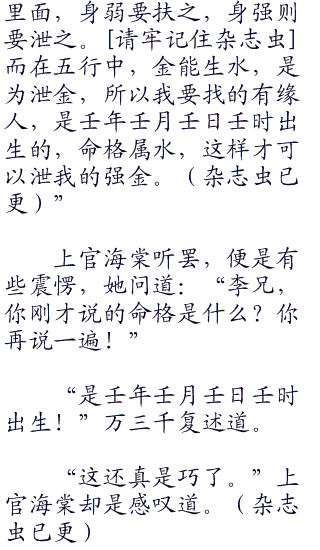 里面，身弱要扶之，身强则
要泄之。[请牢记住杂志虫]
而在五行中，金能生水，是
为泄金，所以我要找的有缘
人，是壬年壬月壬日壬时出
生的，命格属水，这样才可
以泄我的强金。（杂志虫已
更）”
上官海棠听罢，便是有
些震愕，她问道：“李兄，
你刚才说的命格是什么？你
再说一遍！”
“是壬年壬月壬日壬时
出生！”万三千复述道。
“这还真是巧了。”上
官海棠却是感叹道。（杂志
虫已更）